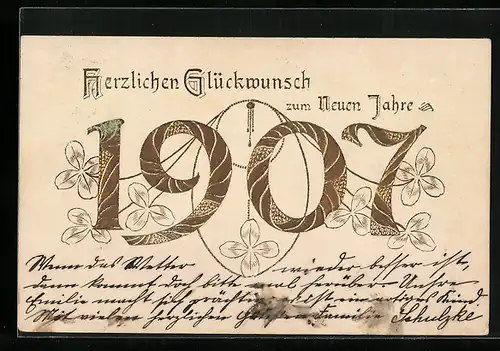 Herzlichen Glückwunsch
zum Neuen Jahre
1907
Wenn das Wetter wieder besser ist,
dann kommt doch bitte mal herüber. Unsre
Emilie macht sich prächtig ist ein artiges Kind.
Mit vielen herzlichen Grüssen Familie Schulzke